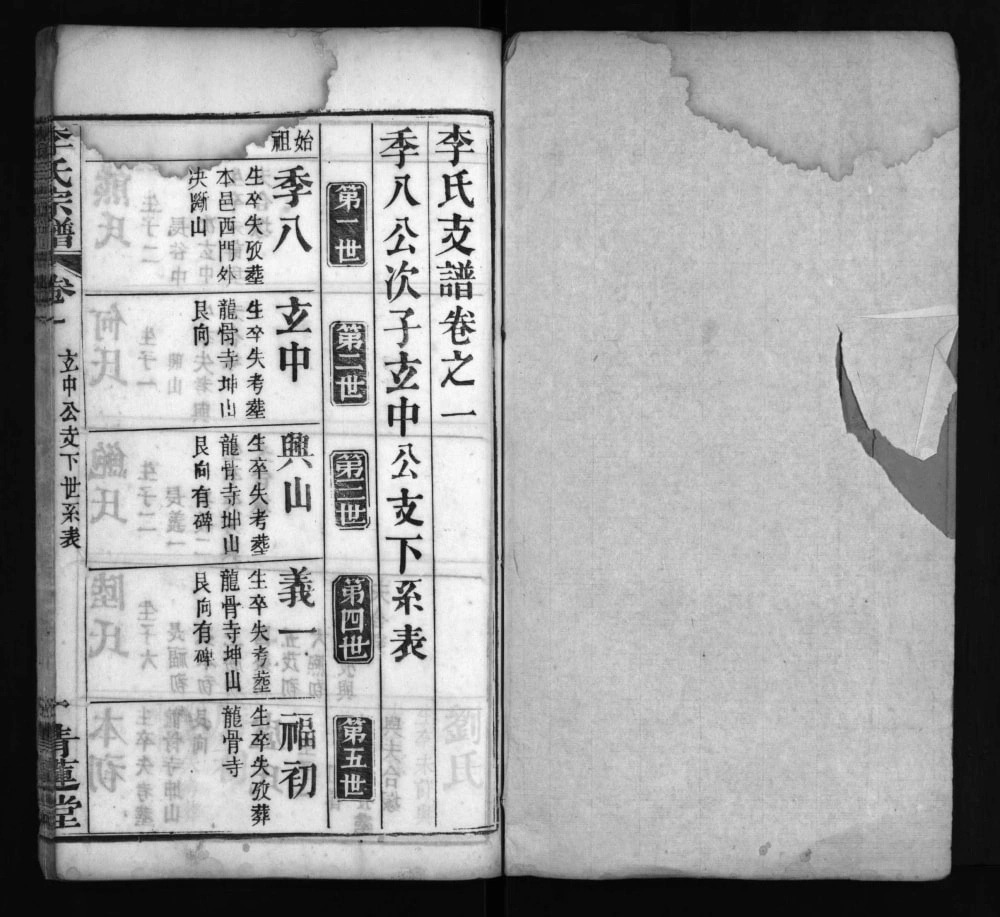 李氏支譜卷之一
季八公次子玄中公支下系表
第一世
第二世
第三世
第四世
第五世
始祖
季八
生卒失攷塟
本邑西門外
決斷山
玄中
生卒失考塟
龍骨寺坤山
艮向
興山
生卒失考塟
龍骨寺坤山
艮向有碑
義一
生卒失考塟
龍骨寺坤山
艮向有碑
福初
生卒失攷葬
龍骨寺
李氏宗譜
卷一
玄中公支下世系表
一
青蓮堂